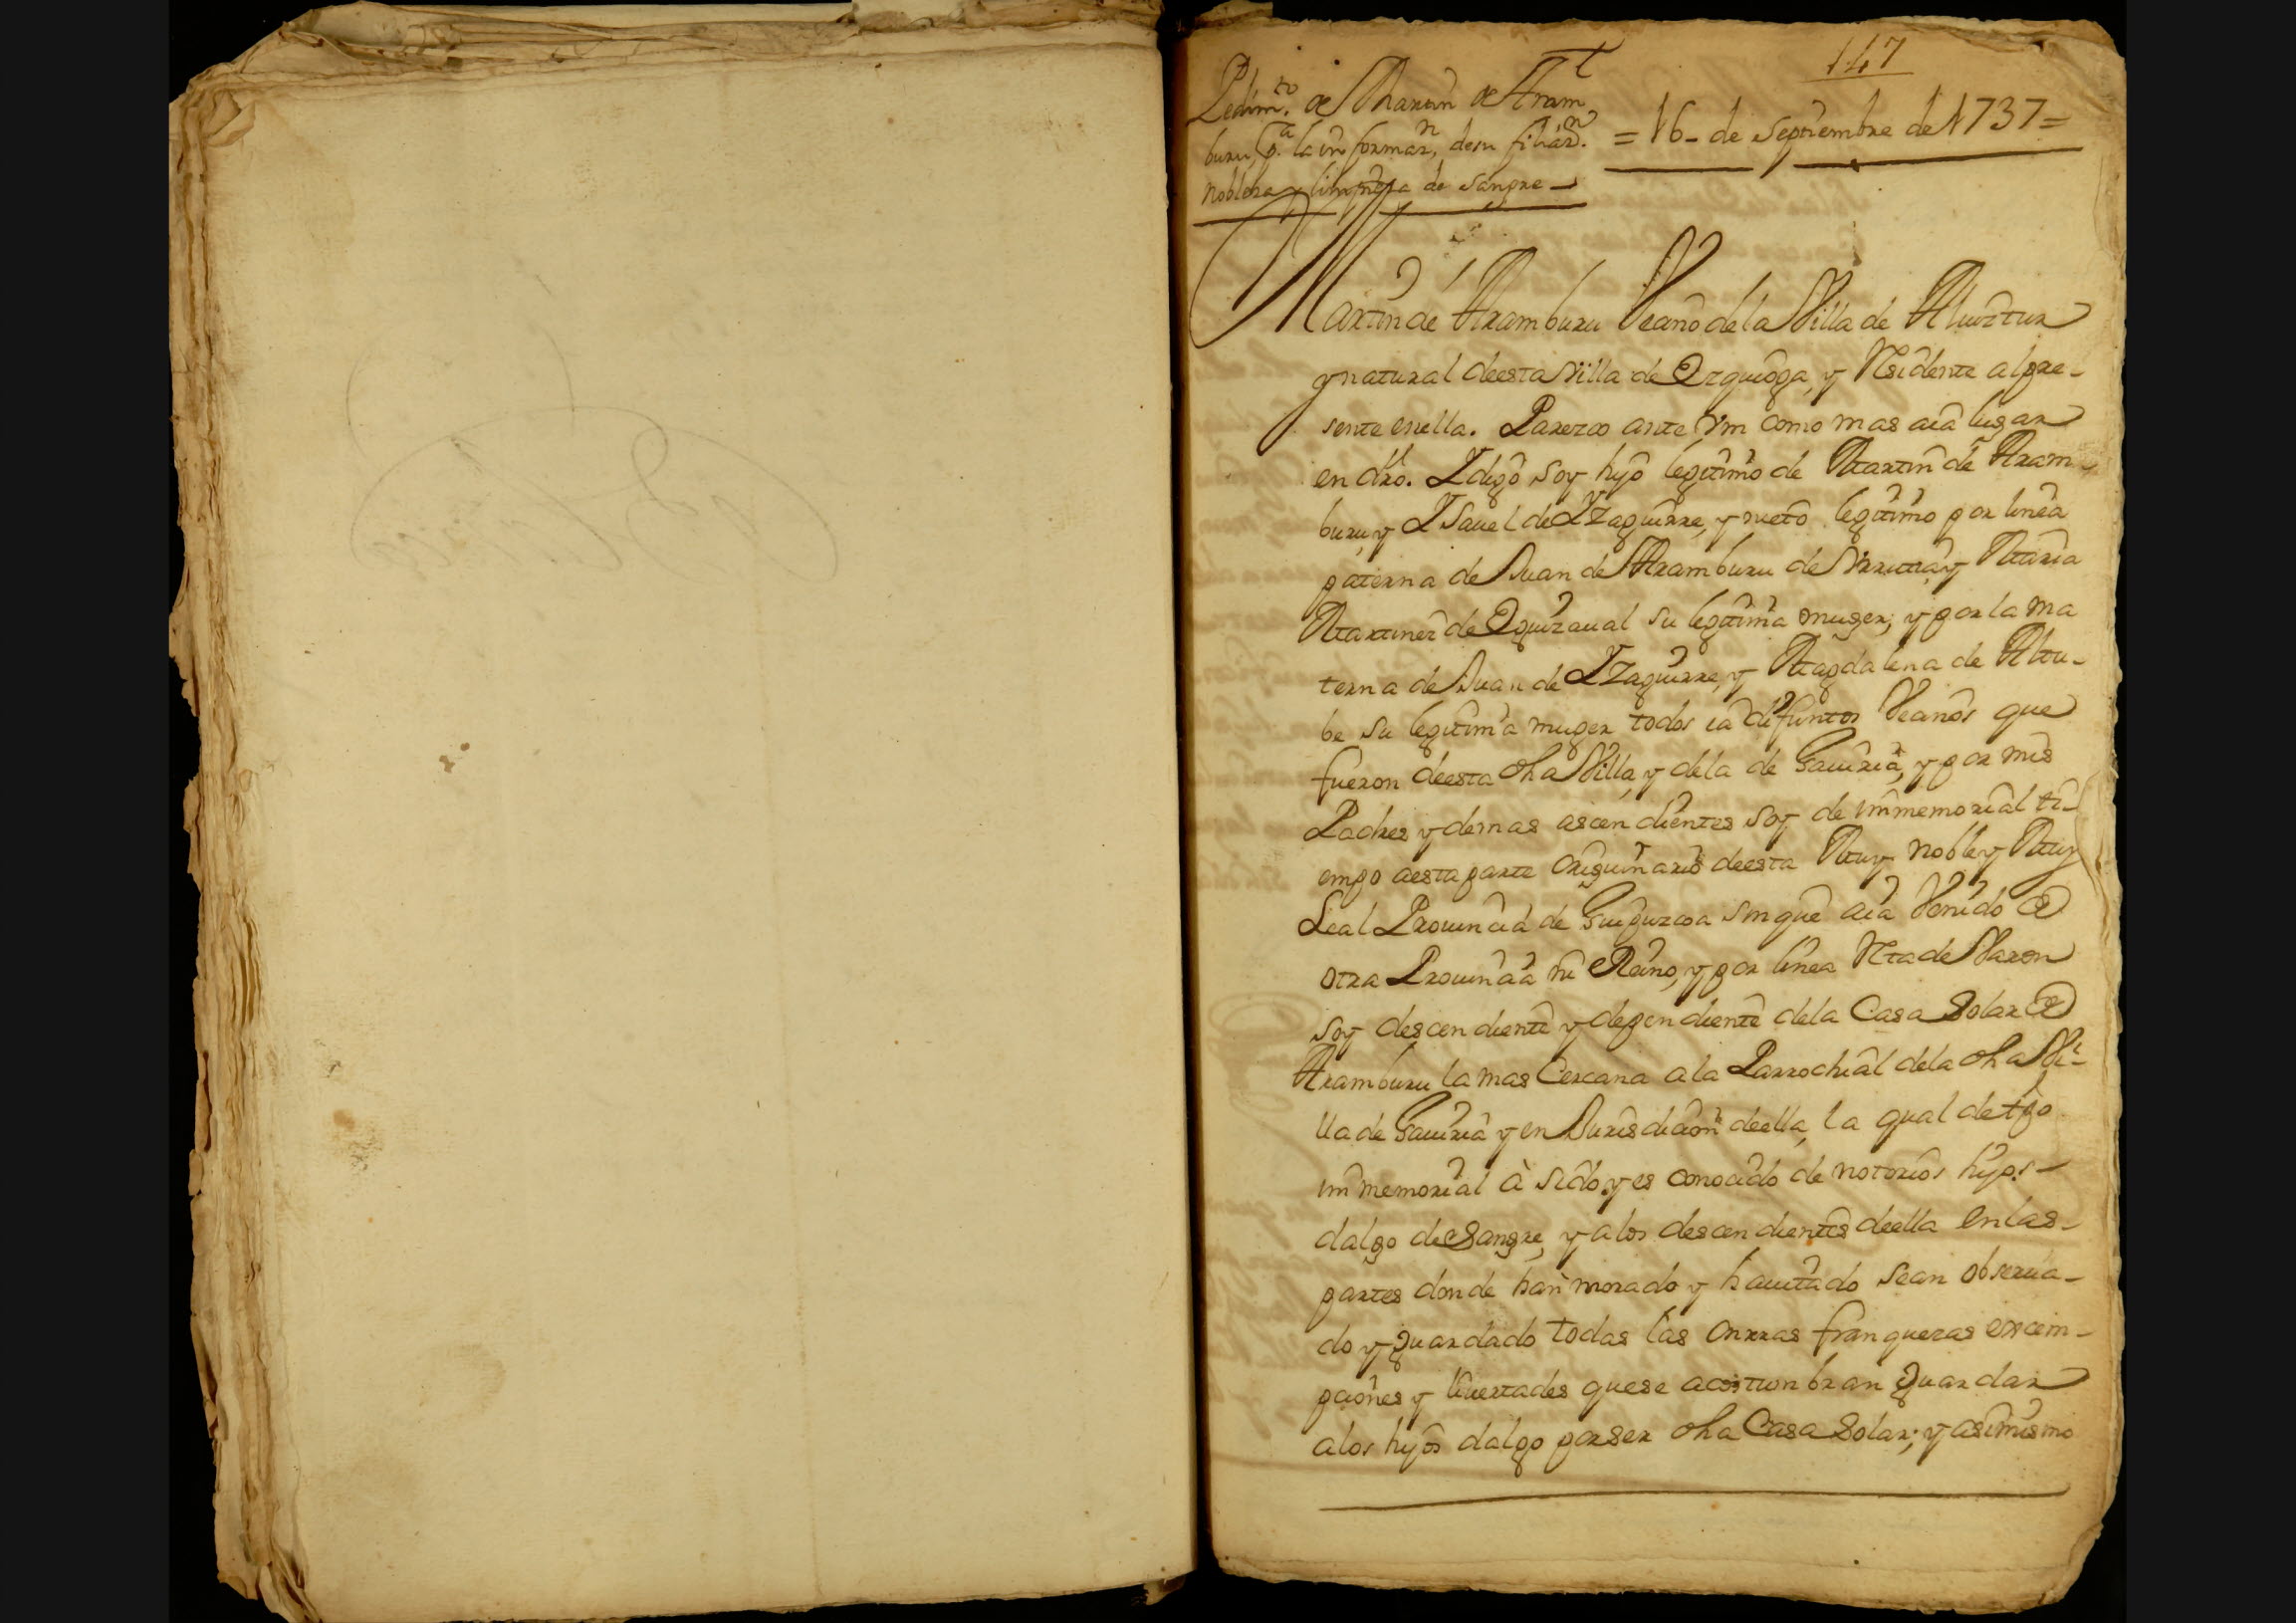 147
Pedim.to de Martin de Aram
buru p.a la informaz.n desu filiaz.n
nobleza y limpieza de sangre —
= 16 - de septiembre de 1737 =
Martin de Aramburu Vecino de la Villa de Aluiztur
y natural deesta Villa de Ezquioga, y Residente al pre-
sente enella. Parezco ante Vm como mas aia lugar
en dro. I digo soy hijo legitimo de Martin de Aram-
buru y Isauel de Izaguirre, y nieto legitimo por linea
paterna de Juan de Aramburu de Urrutia y Maria
Martinez de Eguizaual su legitima muger, y por la ma
terna de Juan de Izaguirre, y Magdalena de Altu-
be su legitima muger todos ia difuntos Vecinos que
fueron deesta dha Villa, y dela de Gauiria, y por mis
Padres y demas ascendientes soy de immemorial ti-
empo aesta parte originario deesta Muy noble y Muy
Leal Prouincia de Guipuzcoa sin que aia Venido de
otra Prouincia ni Reino, y por linea Rta de Varon
soy descendiente y dependiente dela Casa Solar de
Aramburu la mas Cercana ala Parrochial dela dha Vi-
lla de Gauiria y en Jurisdicion deella, la qual de tpo
immemorial à sido y es conocido de notorios hijos-
dalgo de Sangre, y alos descendientes deella en las-
partes donde han morado y hauitado sean obserua-
do y guardado todas las onrras franquezas exem-
pciones y liuertades quese acostumbran guardar
alos hijos dalgo por ser dha Casa Solar; y asimismo